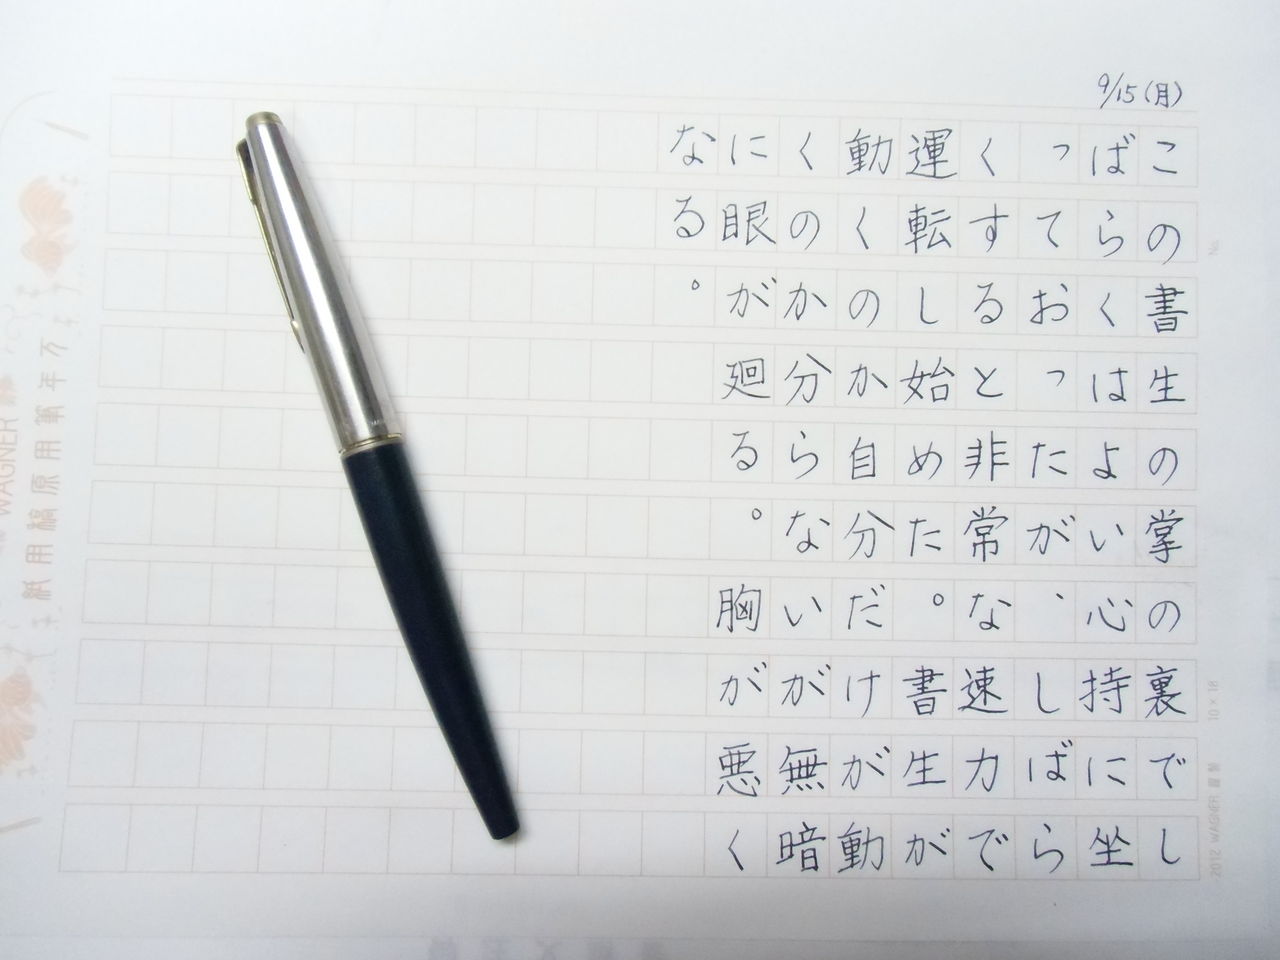 9/15(月)
この書生の掌の裏でし
ばらくはよい心持に坐
っておったが、しばら
くすると非常な速力で
運転し始めた。書生が
動くのか自分だけが動
くのか分らないが無暗
に眼が廻る。胸が悪く
なる。
萬年筆用原稿用紙
WAGNER
No.
10×18
2012 WAGNER